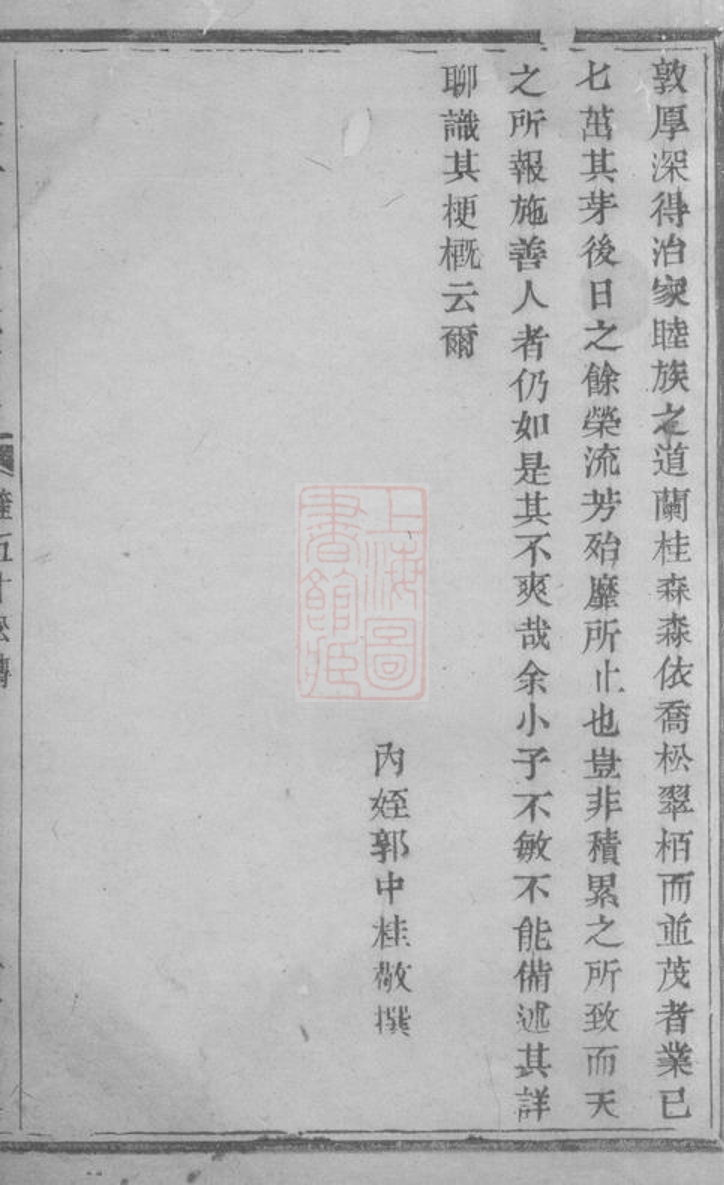 敦厚深得治家睦族之道蘭桂森森依喬松翠栢而並茂者業已
七萬其芽後日之餘榮流芳殆靡所止也豈非積累之所致而天
之所報施善人者仍如是其不爽哉余小子不敏不能備述其詳
聊識其梗概云爾
內姪郭中桂敬撰
上海圖
書館藏